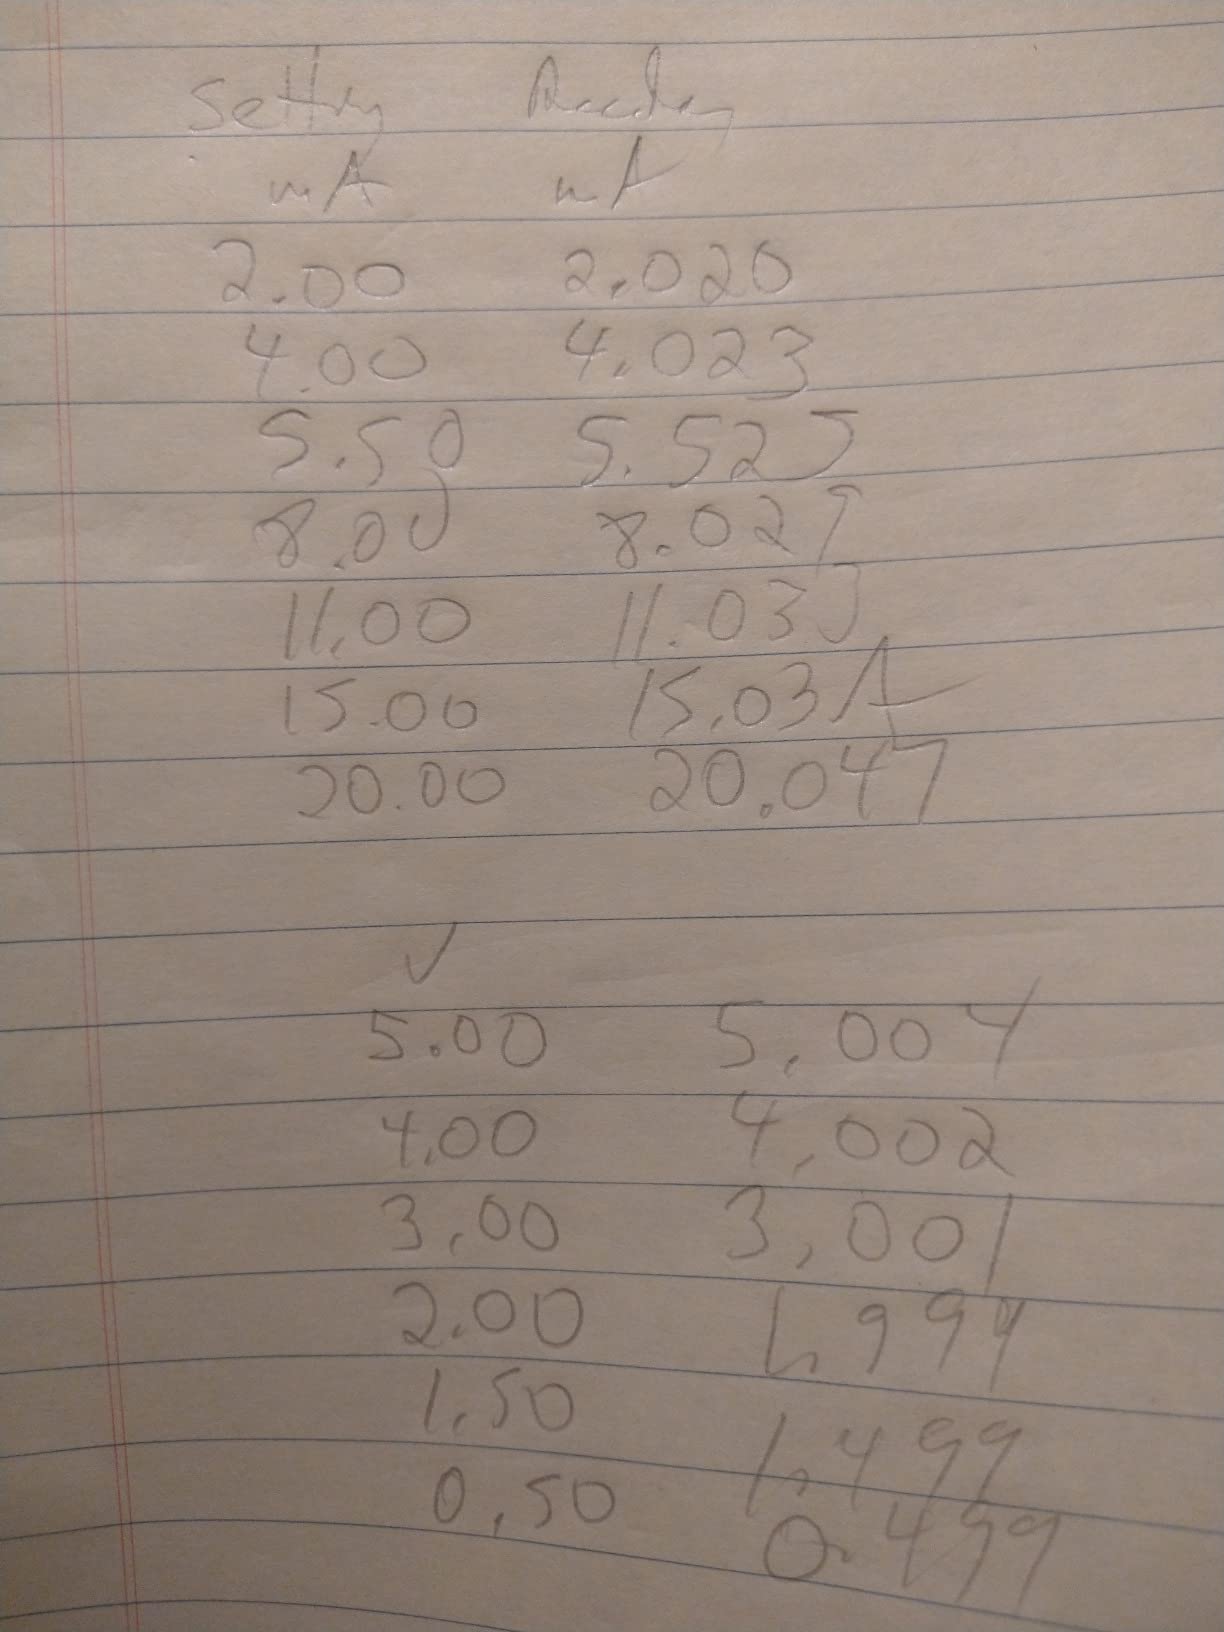 Setting Reading
mA mA
2.00 2.020
4.00 4.023
5.50 5.525
8.00 8.029
11.00 11.033
15.00
20.00 20.047
V
5.00 5.004
4.00 4.002
3.00 3.001
2.00 1.999
1.50 1.499
0.50 0.499